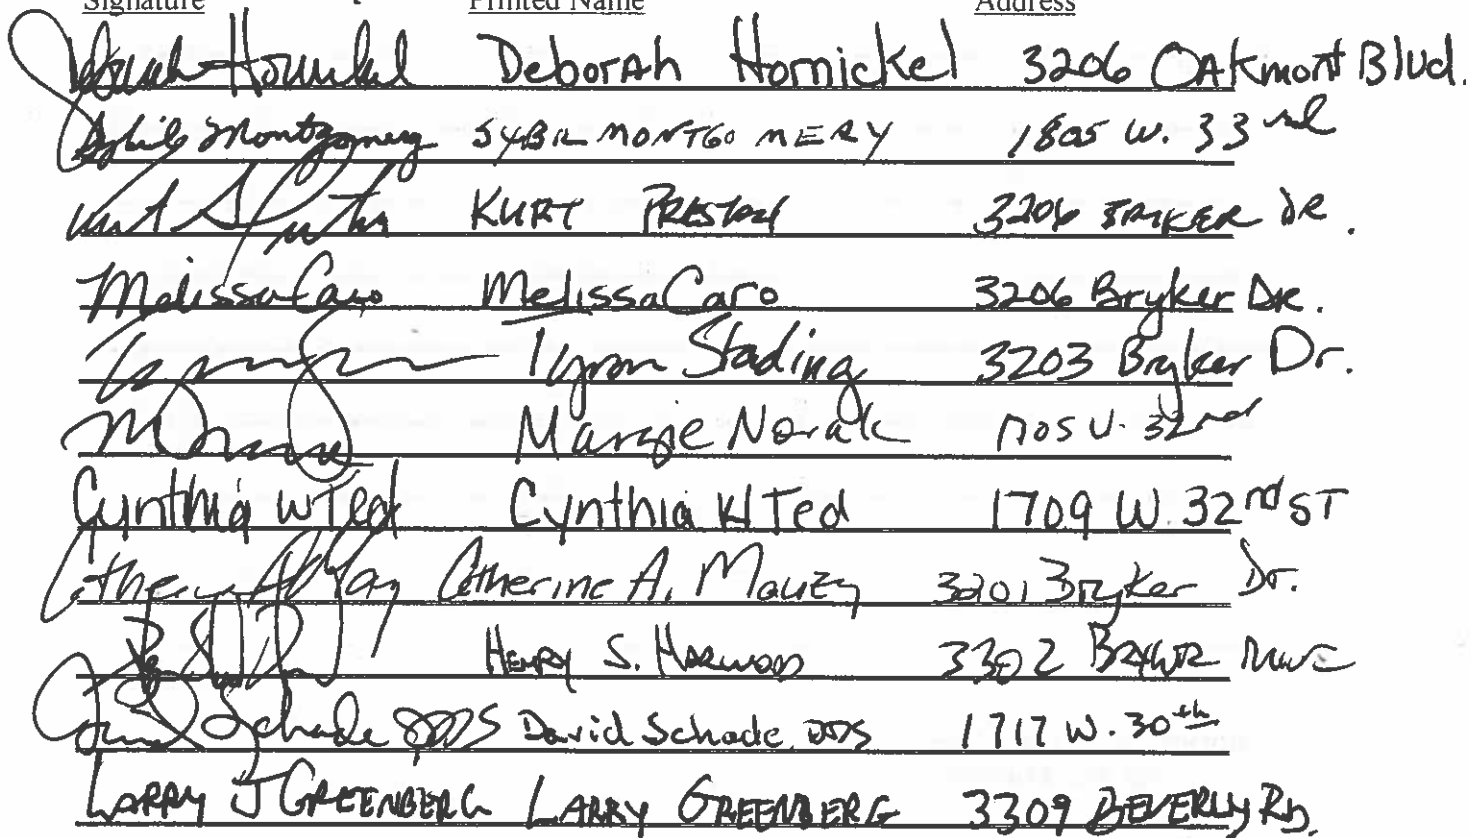 Signature Printed Name Address
Deborah Hornickel Deborah Hornickel 3206 Oakmont Blvd.
Sybil Montgomery SYBIL MONTGOMERY 1805 W. 33rd
KURT PRESTON 3206 BRYKER DR.
Melissa Caro Melissa Caro 3206 Bryker DR.
Tyron Stading 3203 Bryker Dr.
Margie Novak 32nd
Cynthia W Ted Cynthia W Ted 1709 W. 32nd ST
Catherine A. Mauzy 3201 Bryker Dr.
HENRY S. HARWOOD 3302 BRYKER DRIVE
David Schade DDS David Schade DDS 1717 W. 30th
LARRY J GREENBERG LARRY GREENBERG 3309 BEVERLY RD.